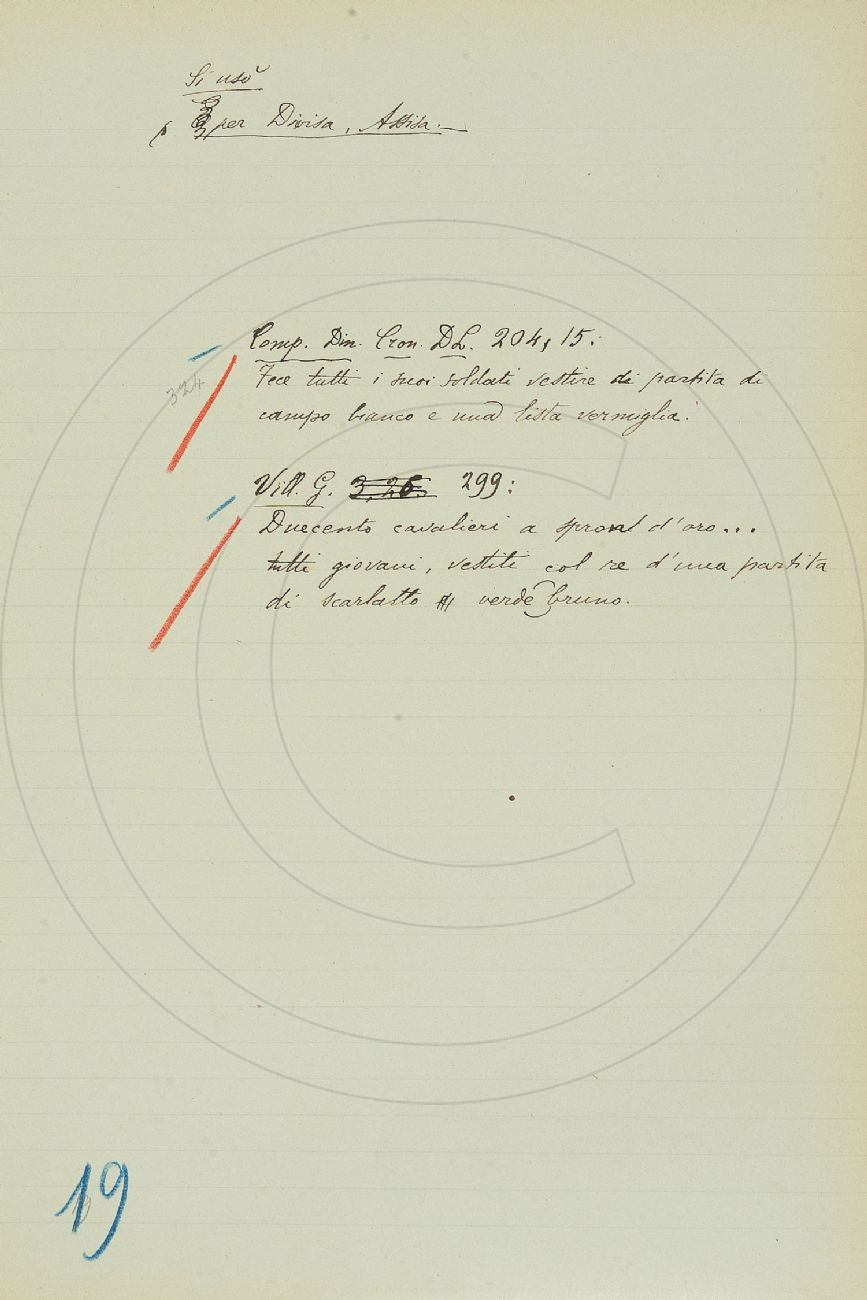 Si usò
per Divisa, Assisa. —
Comp. Din. Cron. DL. 204, 15:
324
Fece tutti i suoi soldati vestire di partita di
campo bianco e una lista vermiglia.
Vill. G. 3, 26. 299:
Duecento cavalieri a sproni d'oro...
tutti giovani, vestiti col re d'una partita
di scarlatto verde bruno.
19